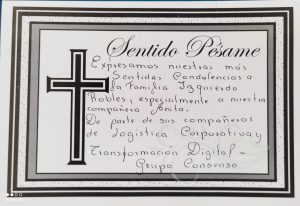 Sentido Pésame
Expresamos nuestras más
Sentidas Condolencias a
la Familia Izquierdo
Robles, especialmente a nuestra
compañera Anita.
De parte de sus compañeros
de Logística Corporativa y
Transformación Digital -
Grupo Consenso